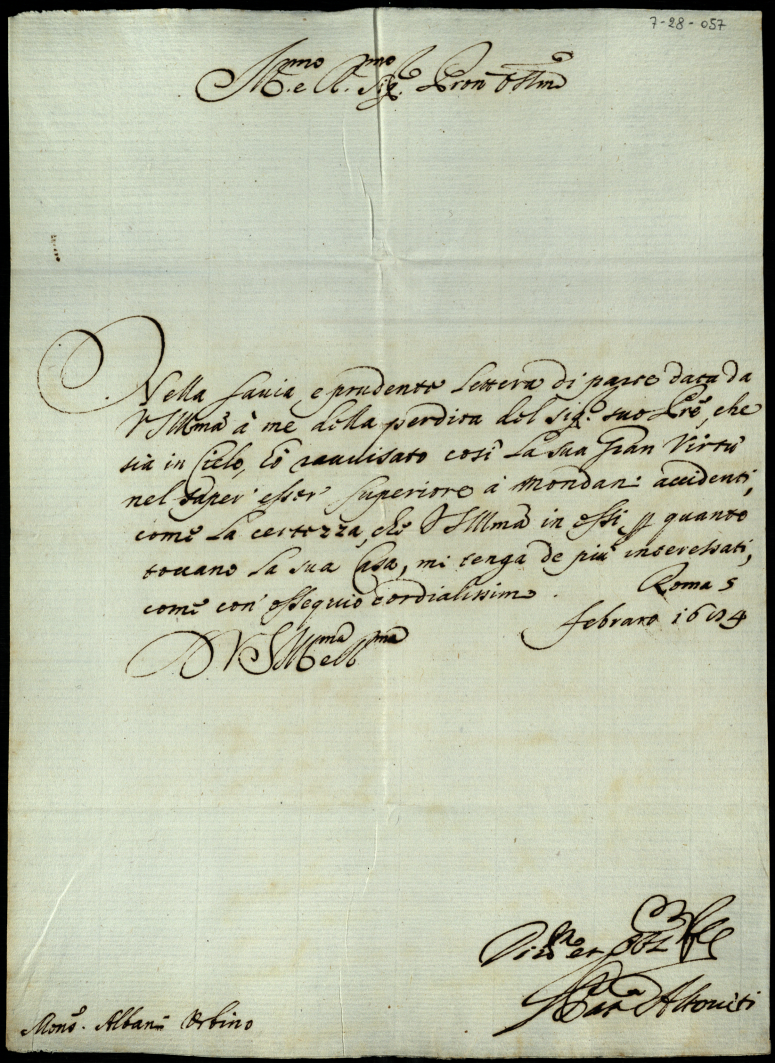 7-28-057
Ill.mo e R.mo Sig.r Pron Oss.mo
Nella savia, e prudente lettera di parte data da
VSIll.ma à me della perdita del Sig.r suo Pre, che
sia in Cielo, hò ravvisato così la sua gran Virtù
nel saper' esser superiore à mondani accidenti,
come la certezza, che VSIll.ma in essi p quanto
tocano la sua Casa, mi tenga de più interessati,
come con' ossequio cordialissimo. Roma 5
febraro 1684
D. VSIll.ma e R.ma
Altoviti
Mons.r Albani Urbino